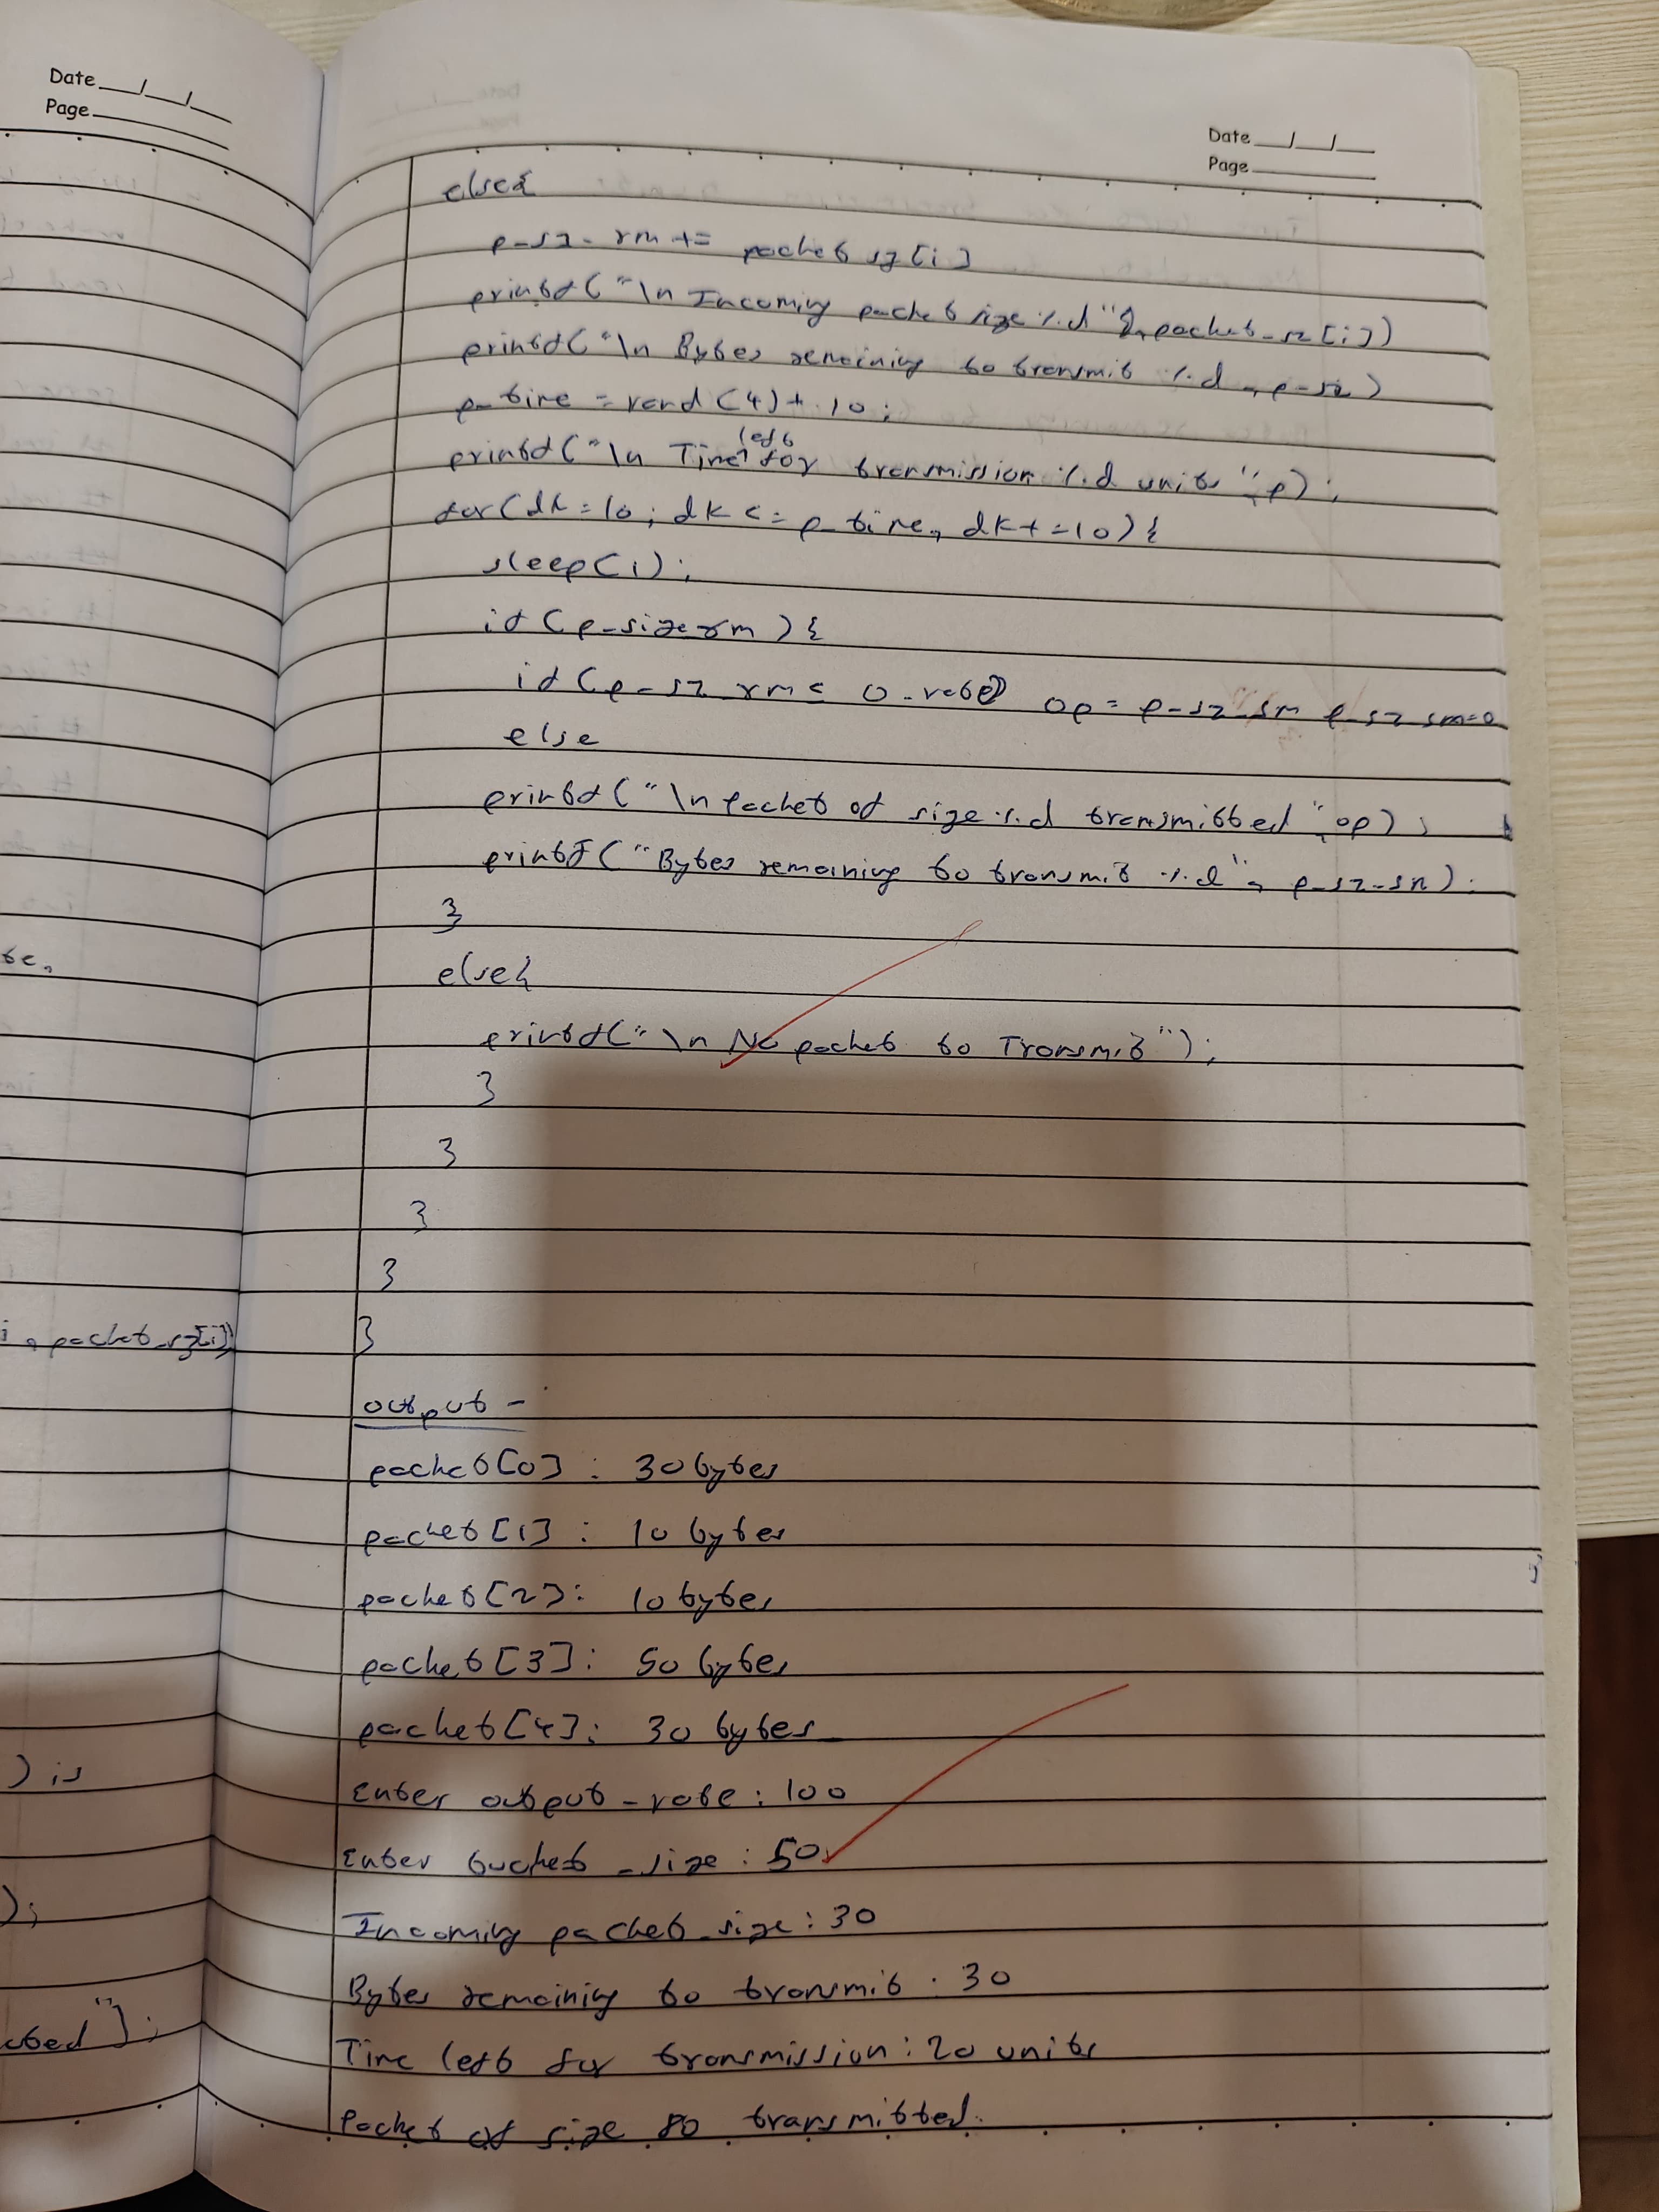 Date
Page
te,
i, packet_sz[i])
) is
);
cted");
Date
Page
else{
p_sz_rm += packet sz[i]
printf("\n Incoming packet size %d", packet_sz[i])
printf("\n Bytes remaining to transmit %d, p_sz)
p_time = rand(4)+ 10;
printf("\n Time left for transmission %d units", p);
for(dk=10; dk <= p_time, dk+=10){
sleep(1);
if(p_size rm){
if(p_sz rm< o_rate) op= p_sz_sm p_sz sm=0
else
printf("\n Packet of size %d transmitted", op);
printf("Bytes remaining to transmit %d", p_sz_sm).
}
else{
printf("\n No packet to Transmit");
}
}
}
}
}
output -
packet[0] : 30 bytes
packet[1] : 10 bytes
packet[2]: 10 bytes
packet[3]: 50 bytes
packet[4]: 30 bytes
Enter output_rate: 100
Enter bucket_size: 50
Incoming packet_size: 30
Bytes remaining to transmit : 30
Time left for transmission: 20 units
Packet of size 80 transmitted.